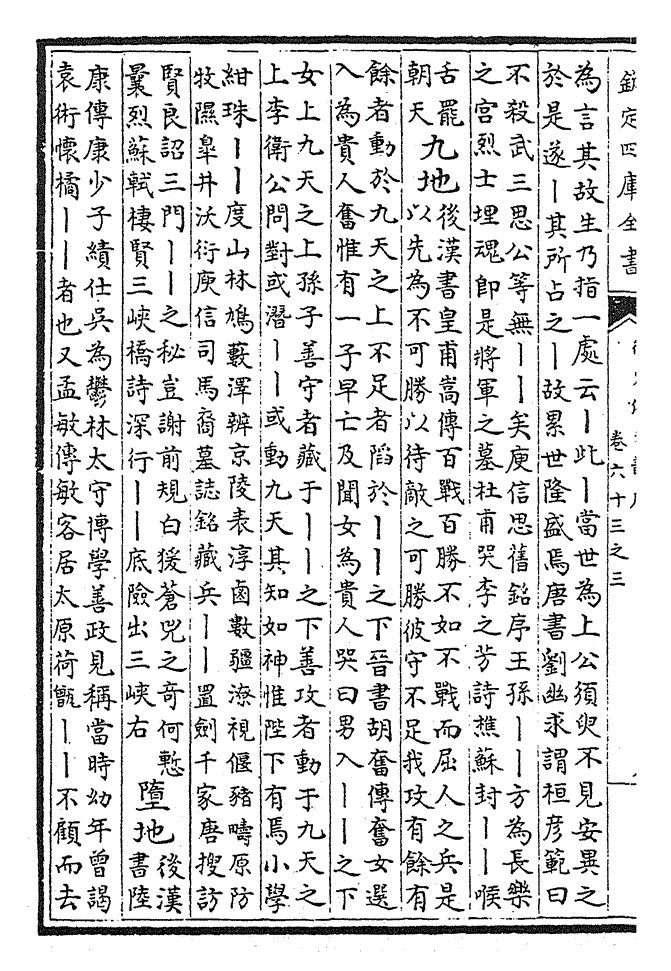 欽定四庫全書
卷六十三之三
為言其故生乃指一處云丨此丨當世為上公須臾不見安異之
於是遂丨其所占之丨故累世隆盛焉唐書劉幽求謂桓彦範曰
不殺武三思公等無丨丨矣庾信思舊銘序王孫丨丨方為長樂
之宮烈士埋魂即是將軍之墓杜甫哭李之芳詩樵蘇封丨丨喉
舌罷
朝天
九地
後漢書皇甫嵩傳百戰百勝不如不戰而屈人之兵是
以先為不可勝以待敵之可勝彼守不足我攻有餘有
餘者動於九天之上不足者陷於丨丨之下晉書胡奮傳奮女選
入為貴人奮惟有一子早亡及聞女為貴人哭曰男入丨丨之下
女上九天之上孫子善守者藏于丨丨之下善攻者動于九天之
上李衛公問對或潛丨丨或動九天其知如神惟陛下有焉小學
紺珠丨丨度山林鳩藪澤辨京陵表淳鹵數疆潦視偃豬疇原防
牧隰臯井沃衍庾信司馬裔墓誌銘藏兵丨丨置劍千家唐搜訪
賢良詔三門丨丨之秘豈謝前規白猿蒼兕之奇何慙
曩烈蘇軾棲賢三峽橋詩深行丨丨底險出三峽右
墮地
後漢
書陸
康傳康少子績仕吳為鬱林太守博學善政見稱當時幼年曾謁
袁術懷橘丨丨者也又孟敏傳敏客居太原荷甑丨丨不顧而去